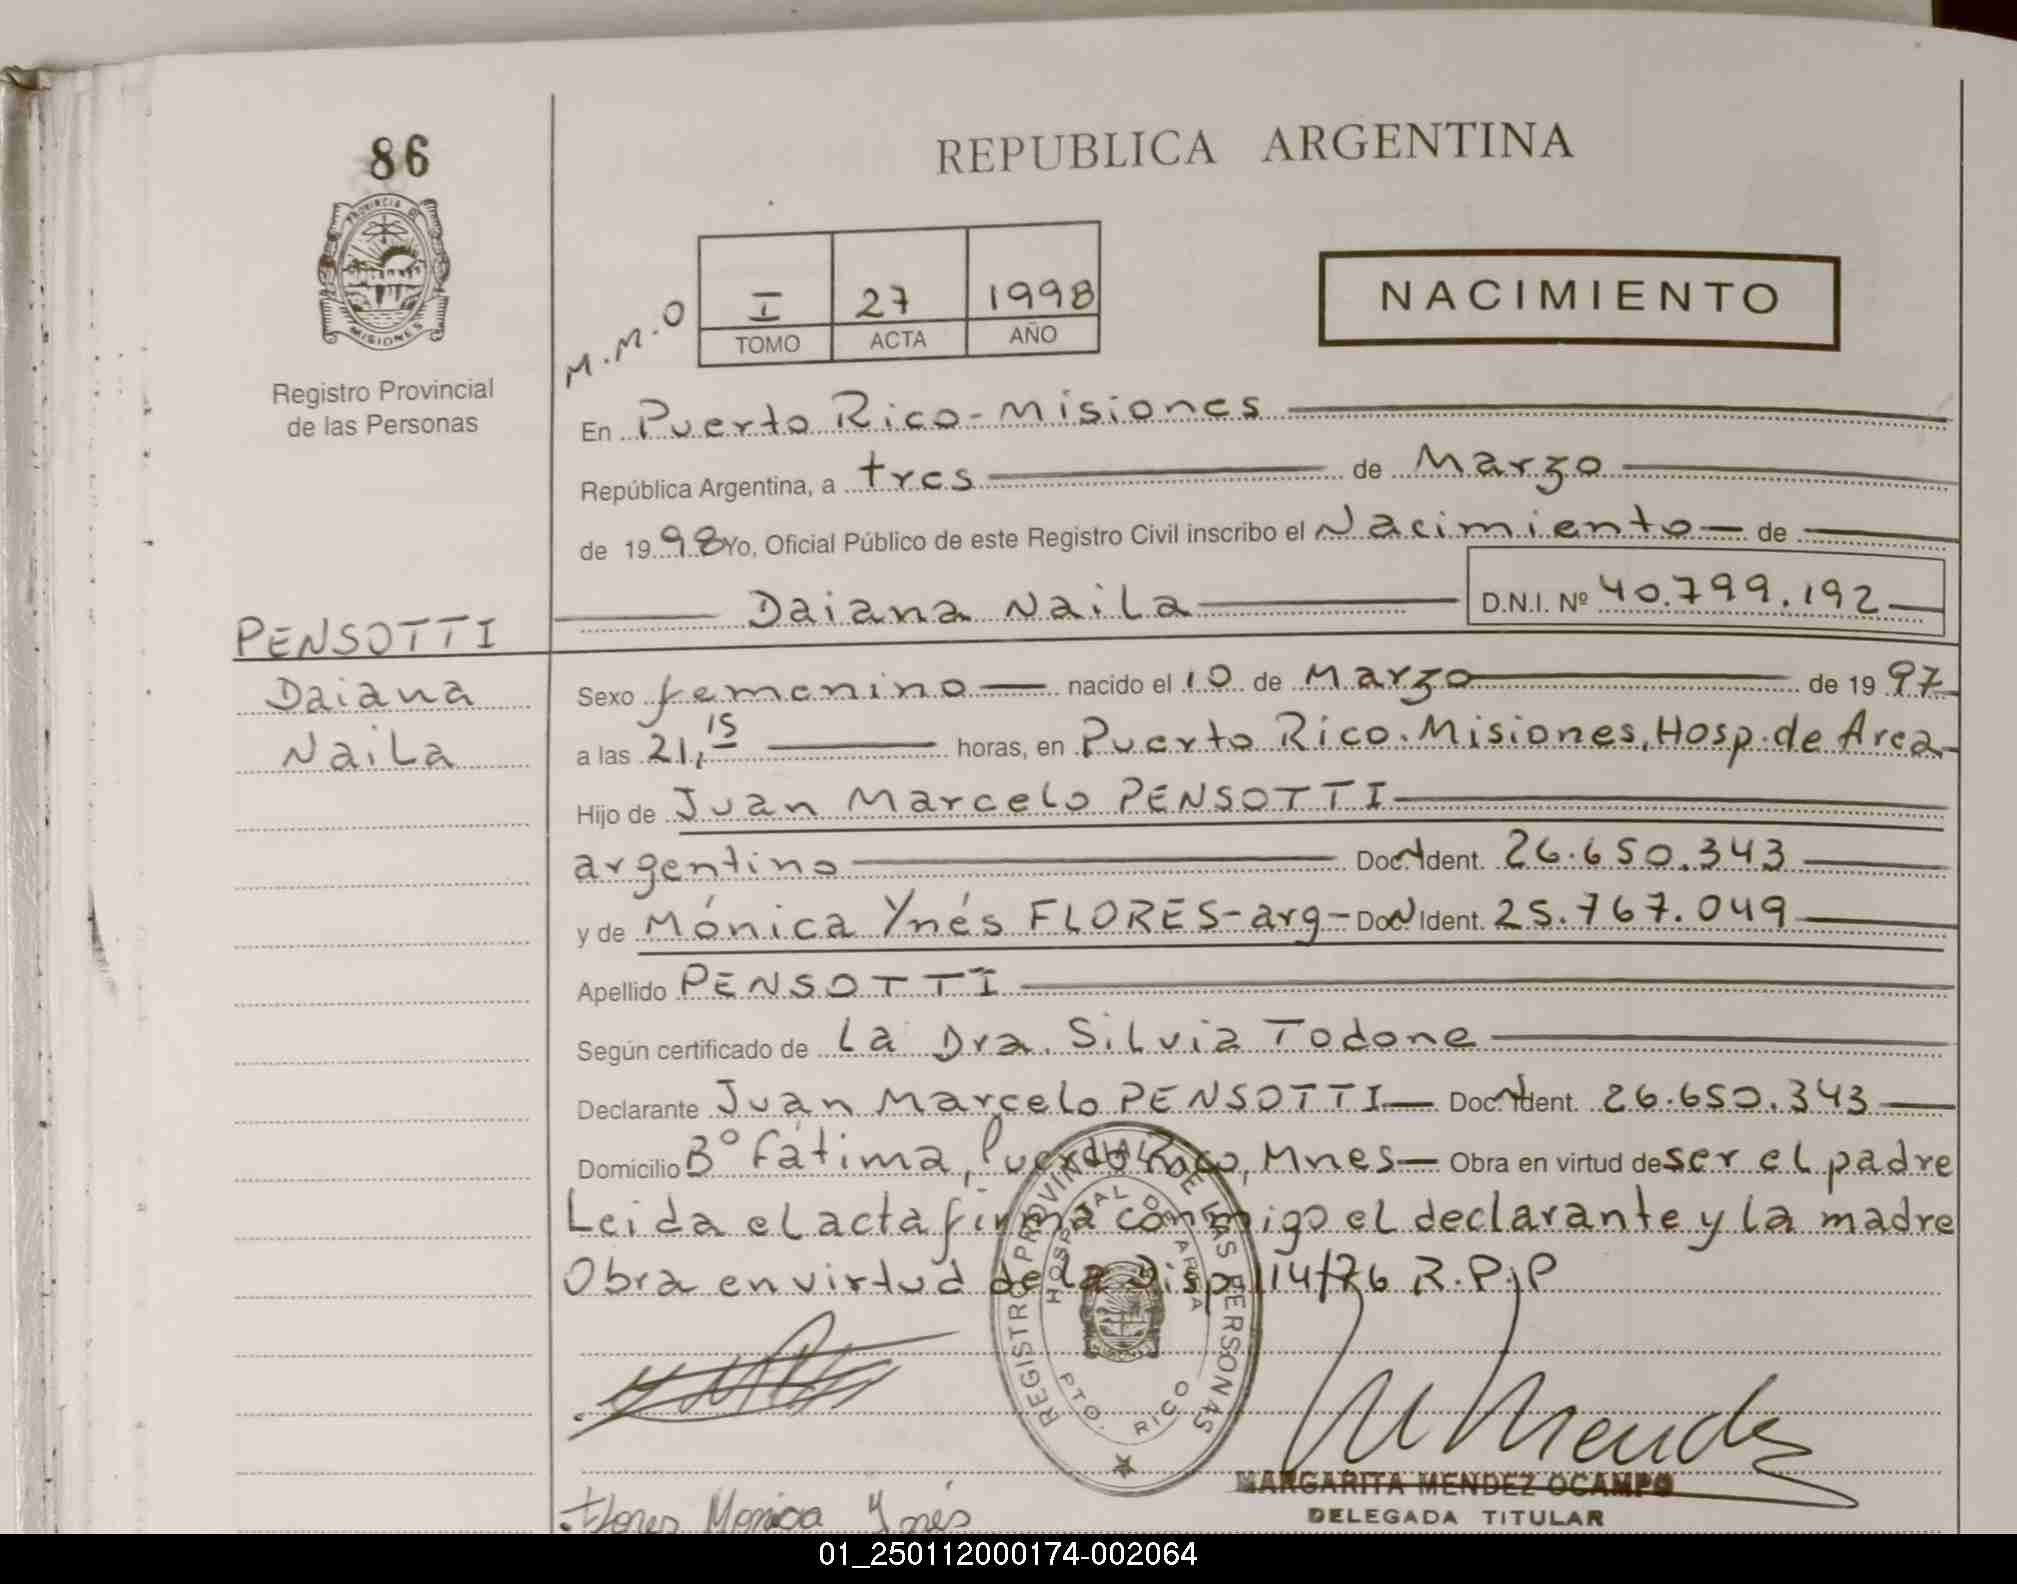 86
REPUBLICA ARGENTINA
PROVINCIA DE
MISIONES
Registro Provincial
de las Personas
M.M.O
I 27 1998
TOMO ACTA AÑO
NACIMIENTO
En Puerto Rico - Misiones
República Argentina, a tres de Marzo
de 1998 Yo, Oficial Público de este Registro Civil inscribo el Nacimiento de
Daiana Naila D.N.I. Nº 40.799.192
PENSOTTI
Daiana
Naila
Sexo femenino nacido el 10 de Marzo de 1997
a las 21,15 horas, en Puerto Rico. Misiones, Hosp. de Area
Hijo de Juan Marcelo PENSOTTI
argentino Doc. Ident. 26.650.343
y de Mónica Ynés FLORES - arg - Doc. Ident. 25.767.049
Apellido PENSOTTI
Según certificado de La Dra. Silvia Todone
Declarante Juan Marcelo PENSOTTI Doc. Ident. 26.650.343
Domicilio Bº Fátima, Puerto Rico, Mnes - Obra en virtud de ser el padre
Leida el acta firma conmigo el declarante y la madre
Obra en virtud de la Disp. 114/76 R.P.P
REGISTRO PROVINCIAL DE LAS PERSONAS
HOSPITAL DE AREA
PTO. RICO
M Mendez
MARGARITA MENDEZ OCAMPO
DELEGADA TITULAR
Flores Monica Ynés
01_250112000174-002064